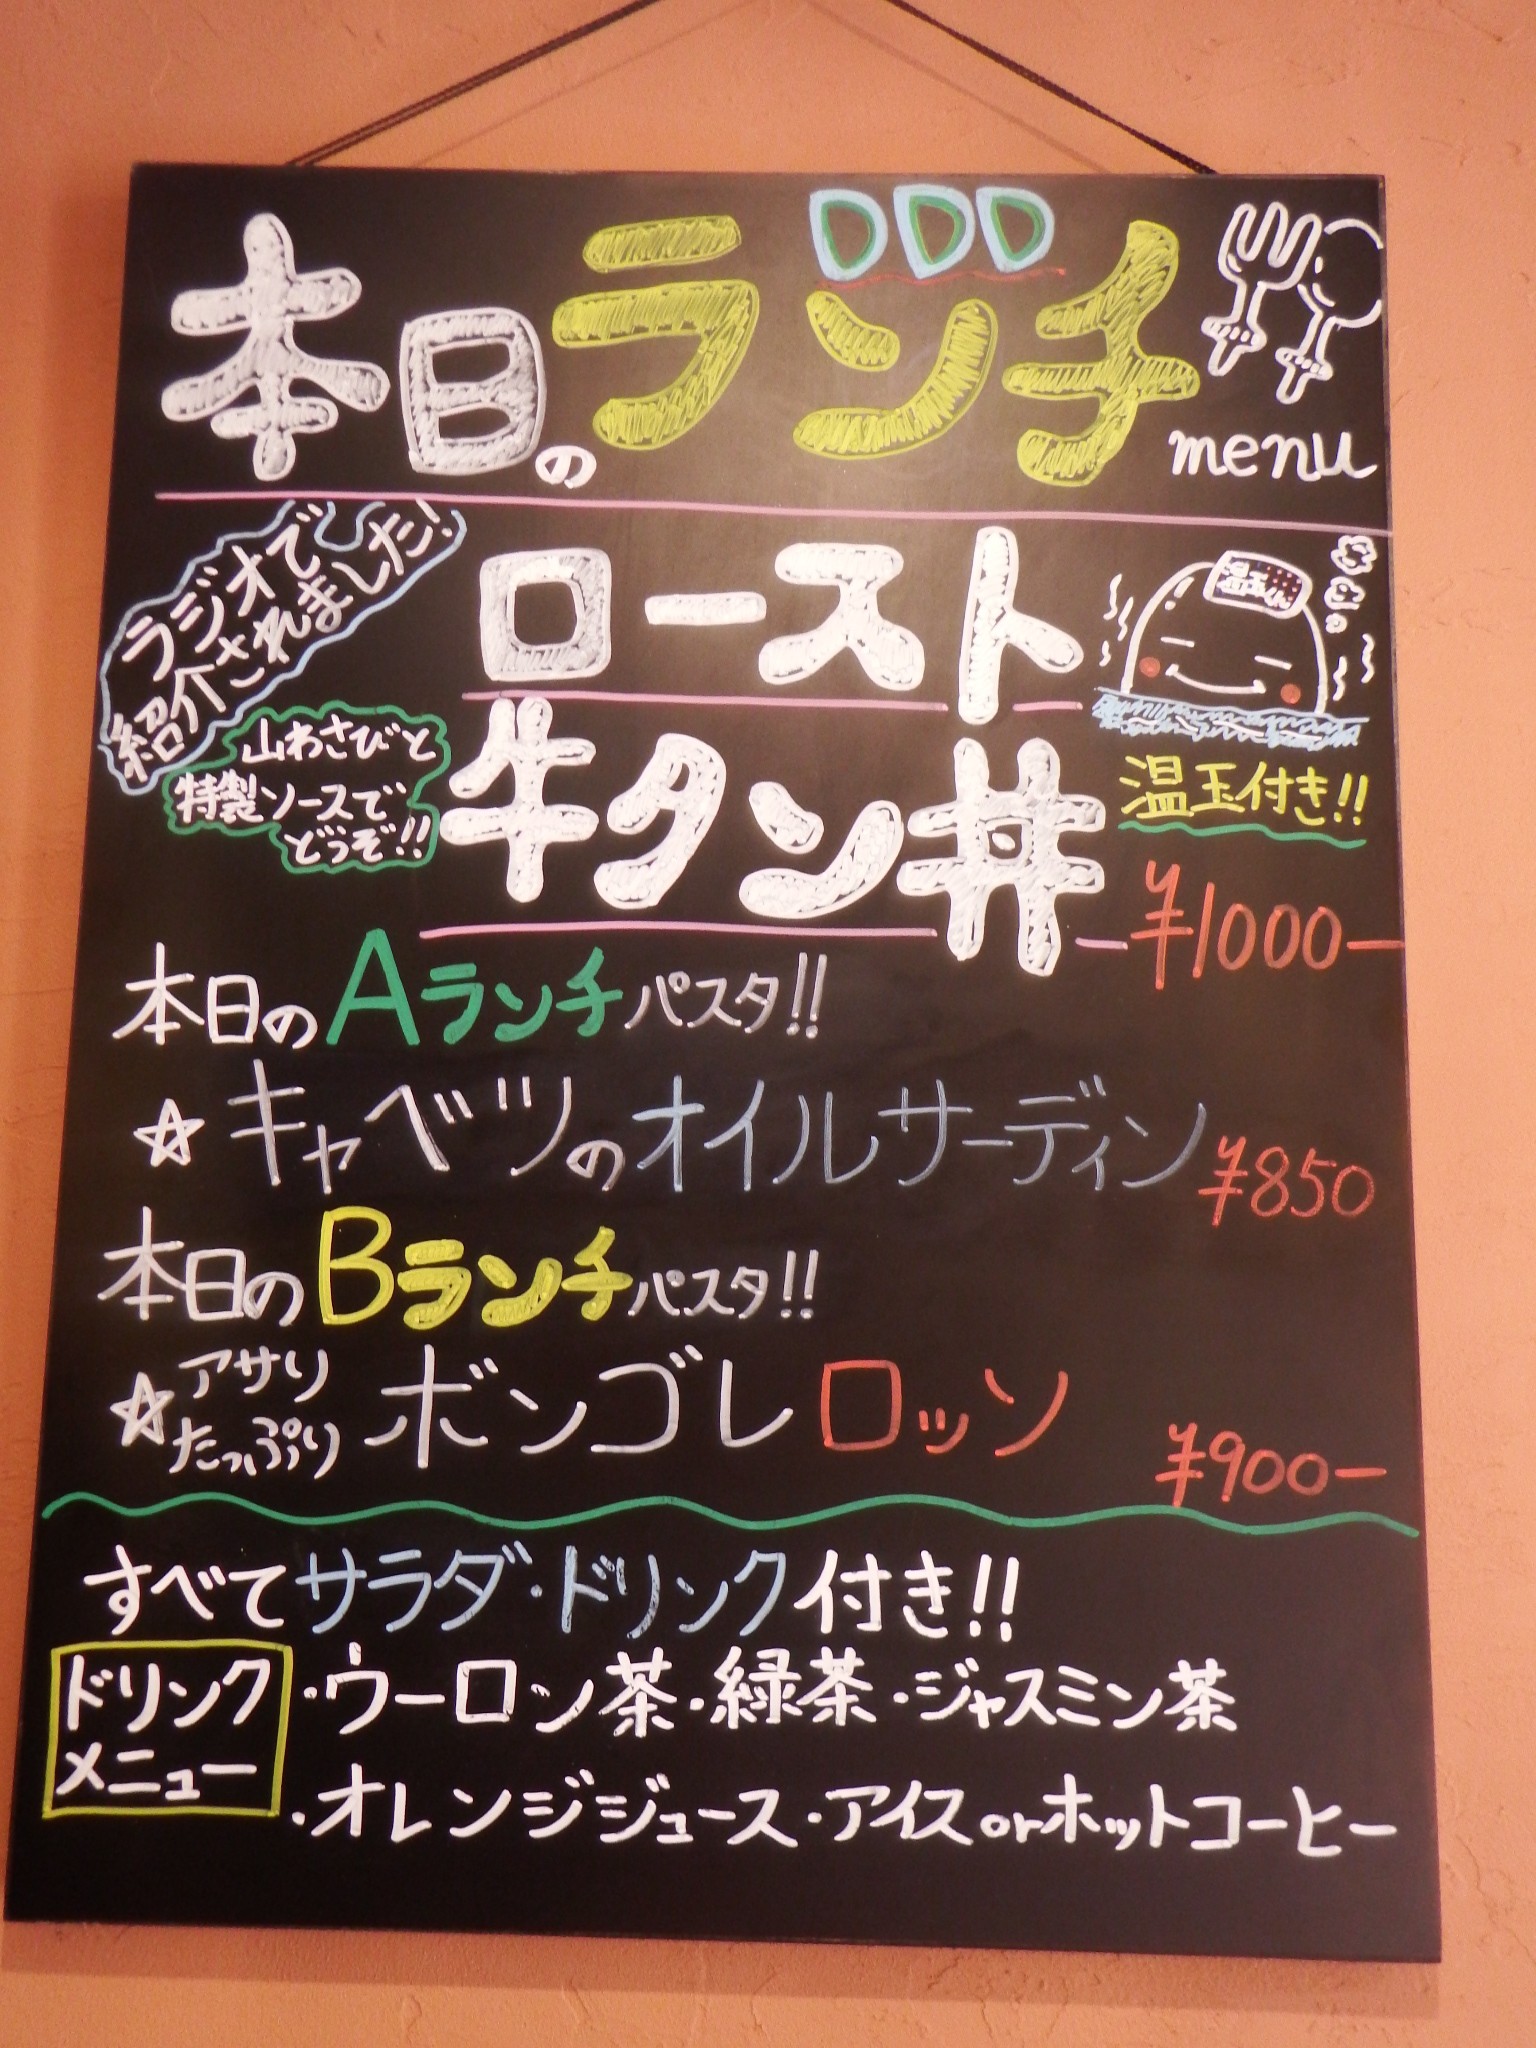 DDD
本日のランチ
menu
ラジオで
紹介されました!
ロースト
牛タン丼
山わさびと
特製ソースで
どうぞ!!
温玉
温玉付き!!
¥1000-
本日のAランチパスタ!!
☆キャベツのオイルサーディン ¥850
本日のBランチパスタ!!
☆アサリたっぷり ボンゴレロッソ ¥900-
すべてサラダ・ドリンク付き!!
ドリンク
メニュー
・ウーロン茶・緑茶・ジャスミン茶
・オレンジジュース・アイスorホットコーヒー